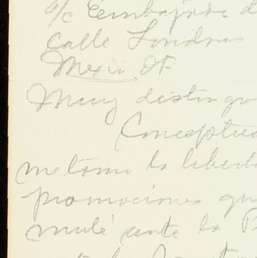 a/c Embajada d
Calle Londres
Mexico. DF.
Muy disting
Conceptua
me tomo la liberta
promociones que
mulé ante la P